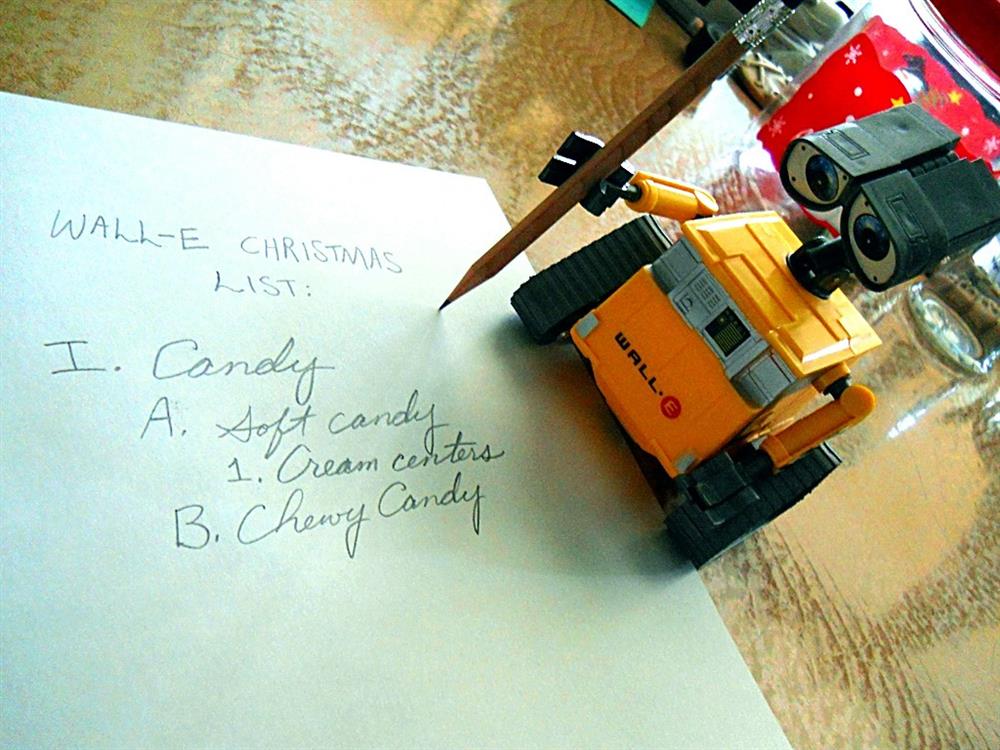 WALL-E CHRISTMAS
LIST:
I. Candy
A. Soft candy
1. Cream centers
B. Chewy Candy
WALL•E